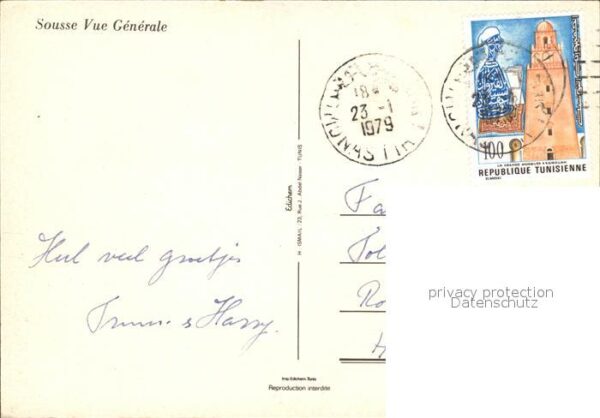 Sousse Vue Générale
18
23 -1
1979
MONASTIR
100
LA GRANDE MOSQUEE KAIROUAN
REPUBLIQUE TUNISIENNE
Edichem
H. ISMAIL: 23, Rue J. Abdel Nasser TUNIS
Fa
Ro
Heel veel groetjes
Harry.
privacy protection
Datenschutz
Imp Edichem Tunis
Reproduction interdite